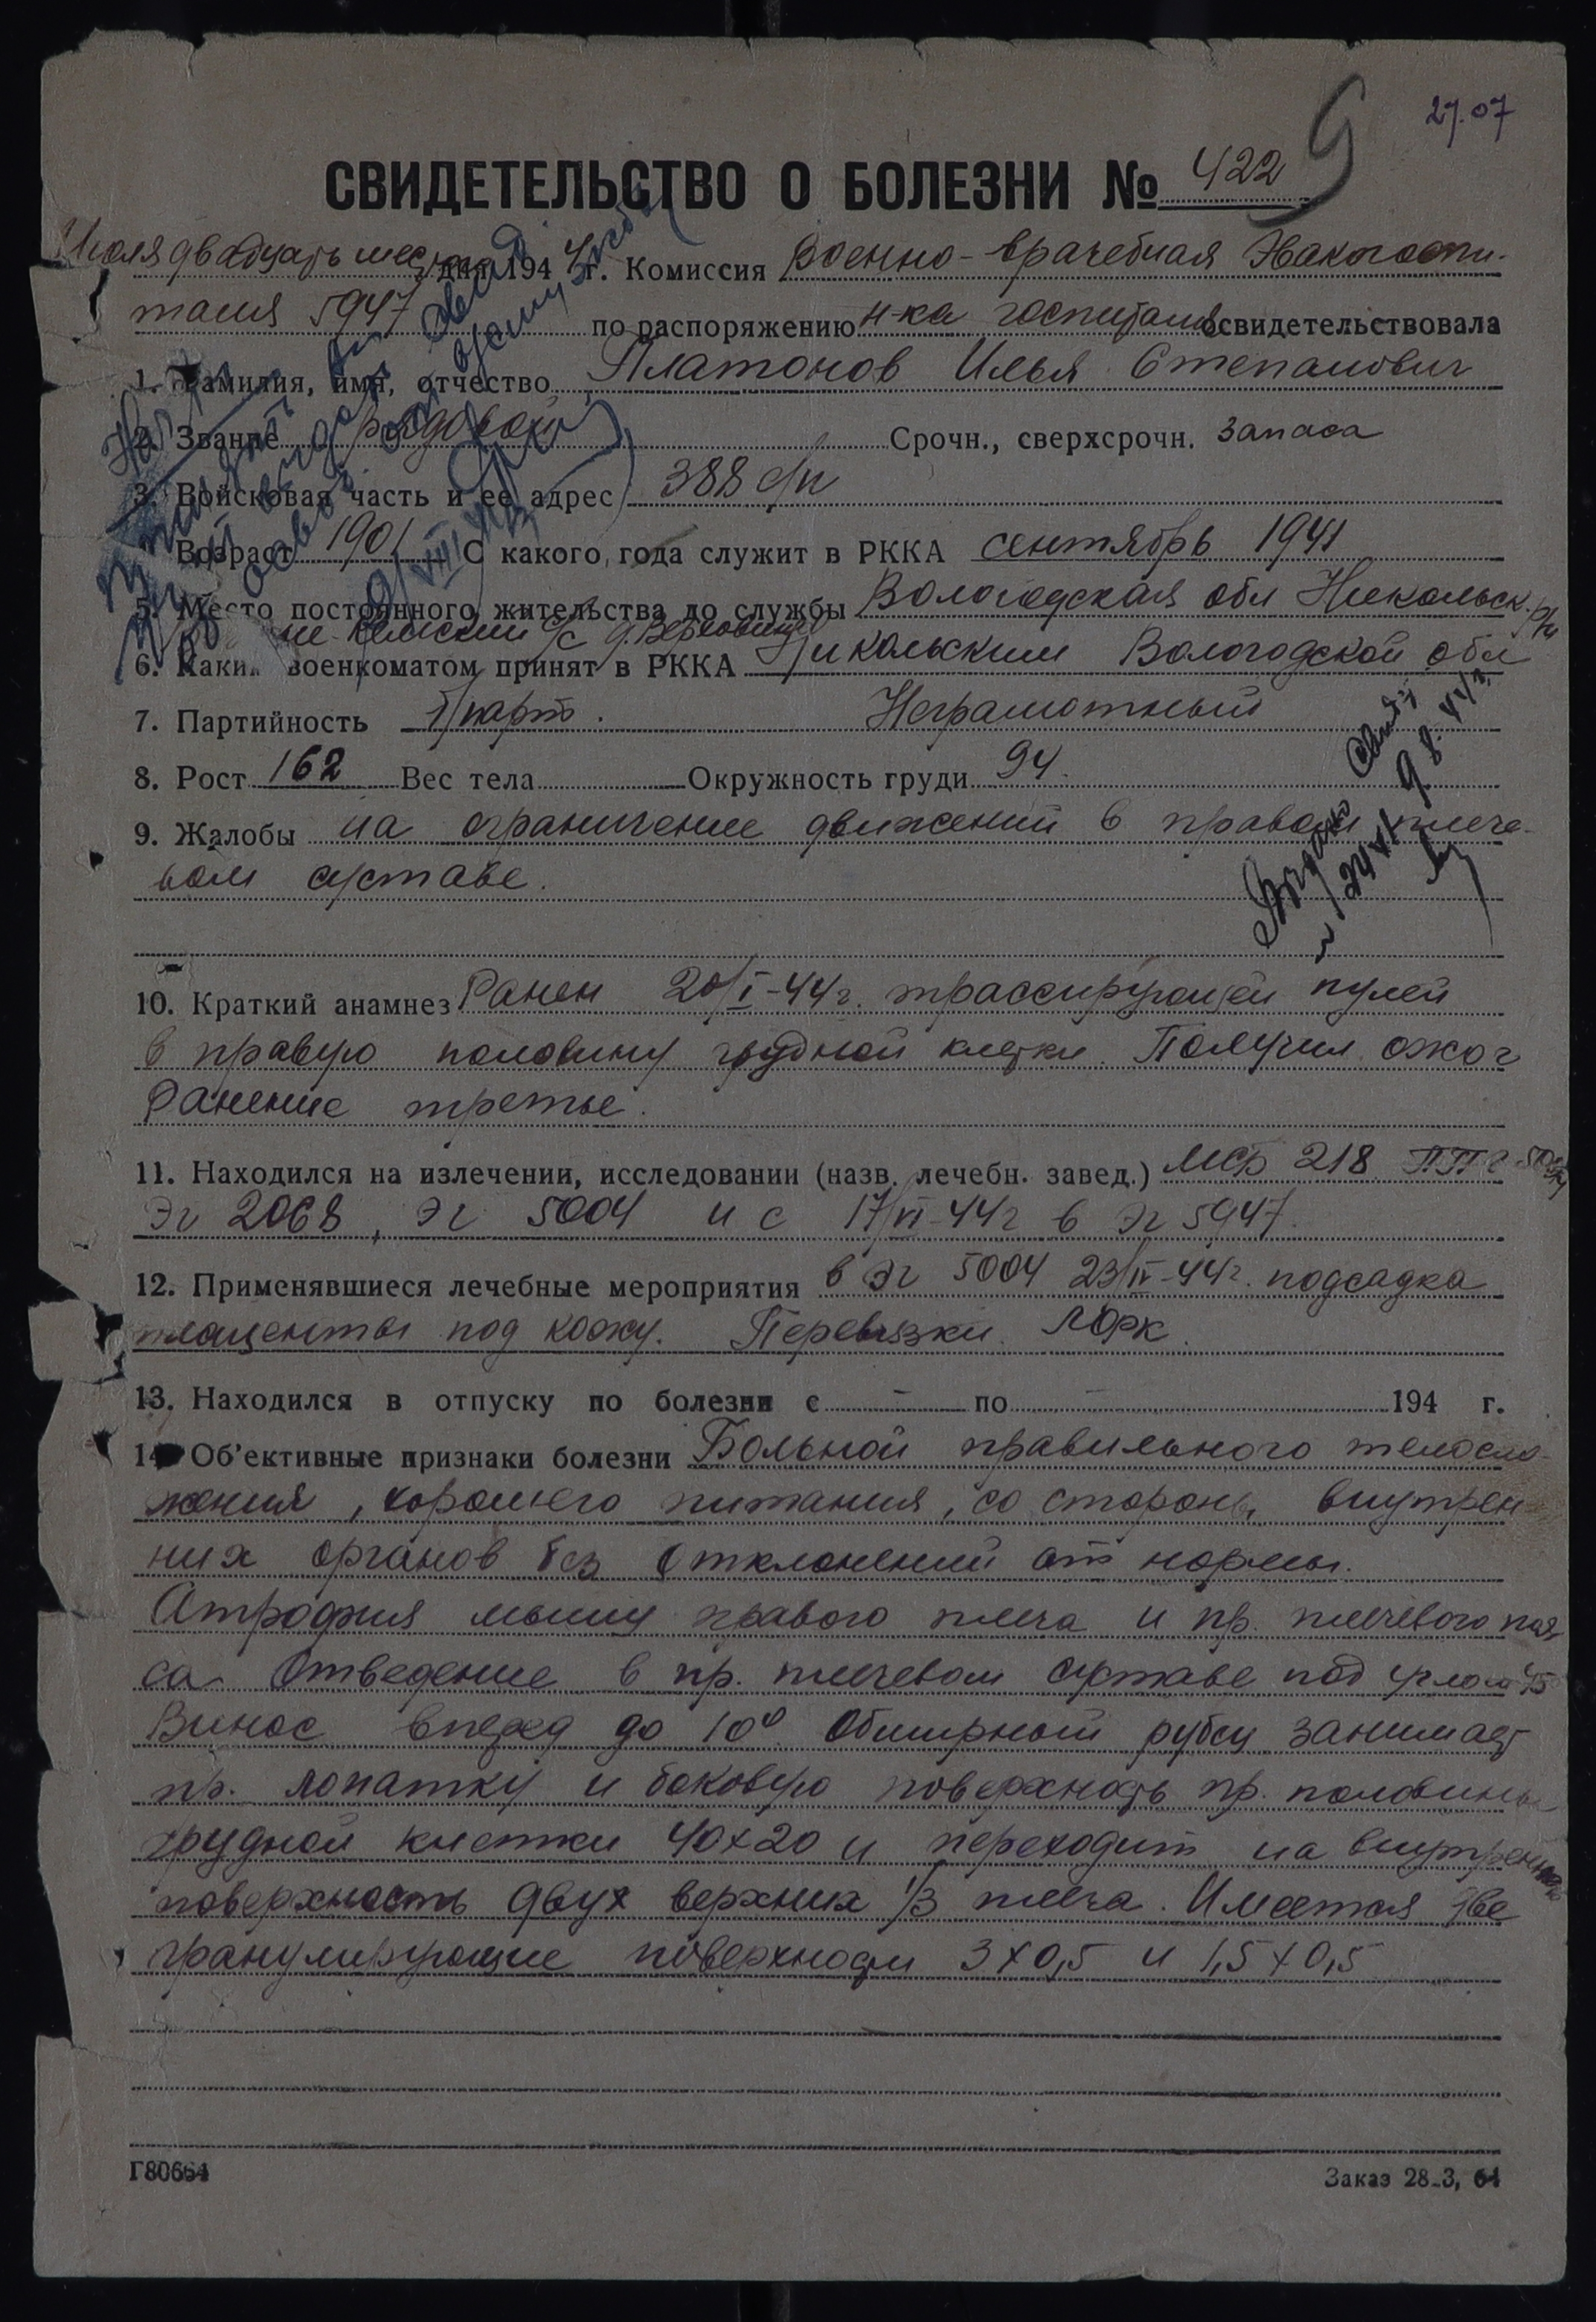 27.07
СВИДЕТЕЛЬСТВО О БОЛЕЗНИ № 422
Июля двадцать шес дня 1944 г. Комиссия Военно-врачебная Эвакогоспи-
таля 5947 по распоряжению н-ка госпиталя освидетельствовала
1. Фамилия, имя, отчество Платонов Илья Степанович
2. Звание рядовой Срочн., сверхсрочн. запаса
3. Войсковая часть и ее адрес 388 с/п
Возраст 1901 С какого года служит в РККА сентябрь 1941
5. Место постоянного жительства до службы Вологодская обл Никольск. р/н
6. Каким военкоматом принят в РККА Никольским Вологодской обл
7. Партийность б/парт. Неграмотный
8. Рост 162 Вес тела Окружность груди 94.
9. Жалобы на ограничение движений в правом плече-
вом суставе.
10. Краткий анамнез Ранен 20/I-44г. трассирующей пулей
в правую половину грудной клетки. Получил ожог
Ранение третье.
11. Находился на излечении, исследовании (назв. лечебн. завед.) МСБ 218 ППГ
ЭГ 2068, ЭГ 5004 и с 17/VI-44г в ЭГ 5947.
12. Применявшиеся лечебные мероприятия в ЭГ 5004 23/IV-44г. подсадка
плаценты под кожу. Перевязки. ЛФК.
13. Находился в отпуску по болезни с - по - 194 г.
14. Об'ективные признаки болезни Больной правильного телосло-
жения, хорошего питания, со стороны внутрен
них органов без отклонений от нормы.
Атрофия мышц правого плеча и пр. плечевого поя
са. Отведение в пр. плечевом суставе под углом 45°
Вынос вперед до 10° Обширный рубец занимает
пр. лопатку и боковую поверхность пр. половины
грудной клетки 40х20 и переходит на внутреннюю
поверхность двух верхних 1/3 плеча. Имеется две
гранулирующие поверхности 3х0,5 и 1,5х0,5
Г80664 Заказ 28-3, 64